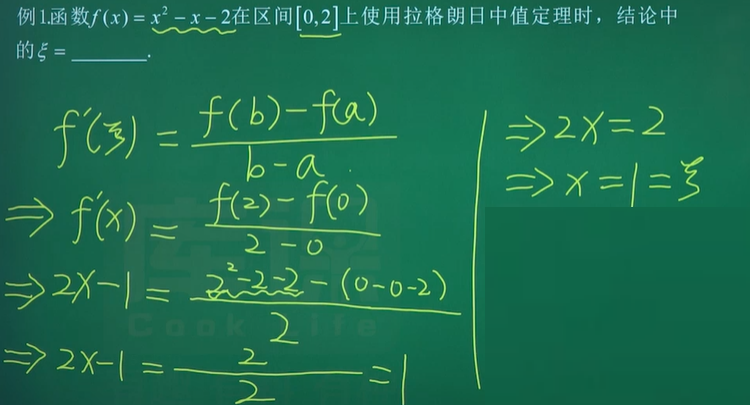 例1.函数f(x) = x² − x − 2在区间[0,2]上使用拉格朗日中值定理时，结论中
的ξ = ______.
f'(ξ) = (f(b) − f(a)) / (b − a)
⇒ f'(x) = (f(2) − f(0)) / (2 − 0)
⇒ 2x − 1 = (2² − 2 − 2 − (0 − 0 − 2)) / 2
⇒ 2x − 1 = 2 / 2 = 1
⇒ 2x = 2
⇒ x = 1 = ξ
Cook Life